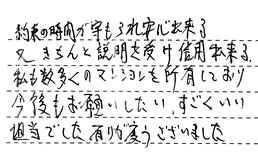 約束の時間が守もられ安心出来る
又きちんと説明を受け信用出来る
私も数多くのマンションを所有しており
今後もお願いしたい、すごくいい
担当でした。有りが度うございました